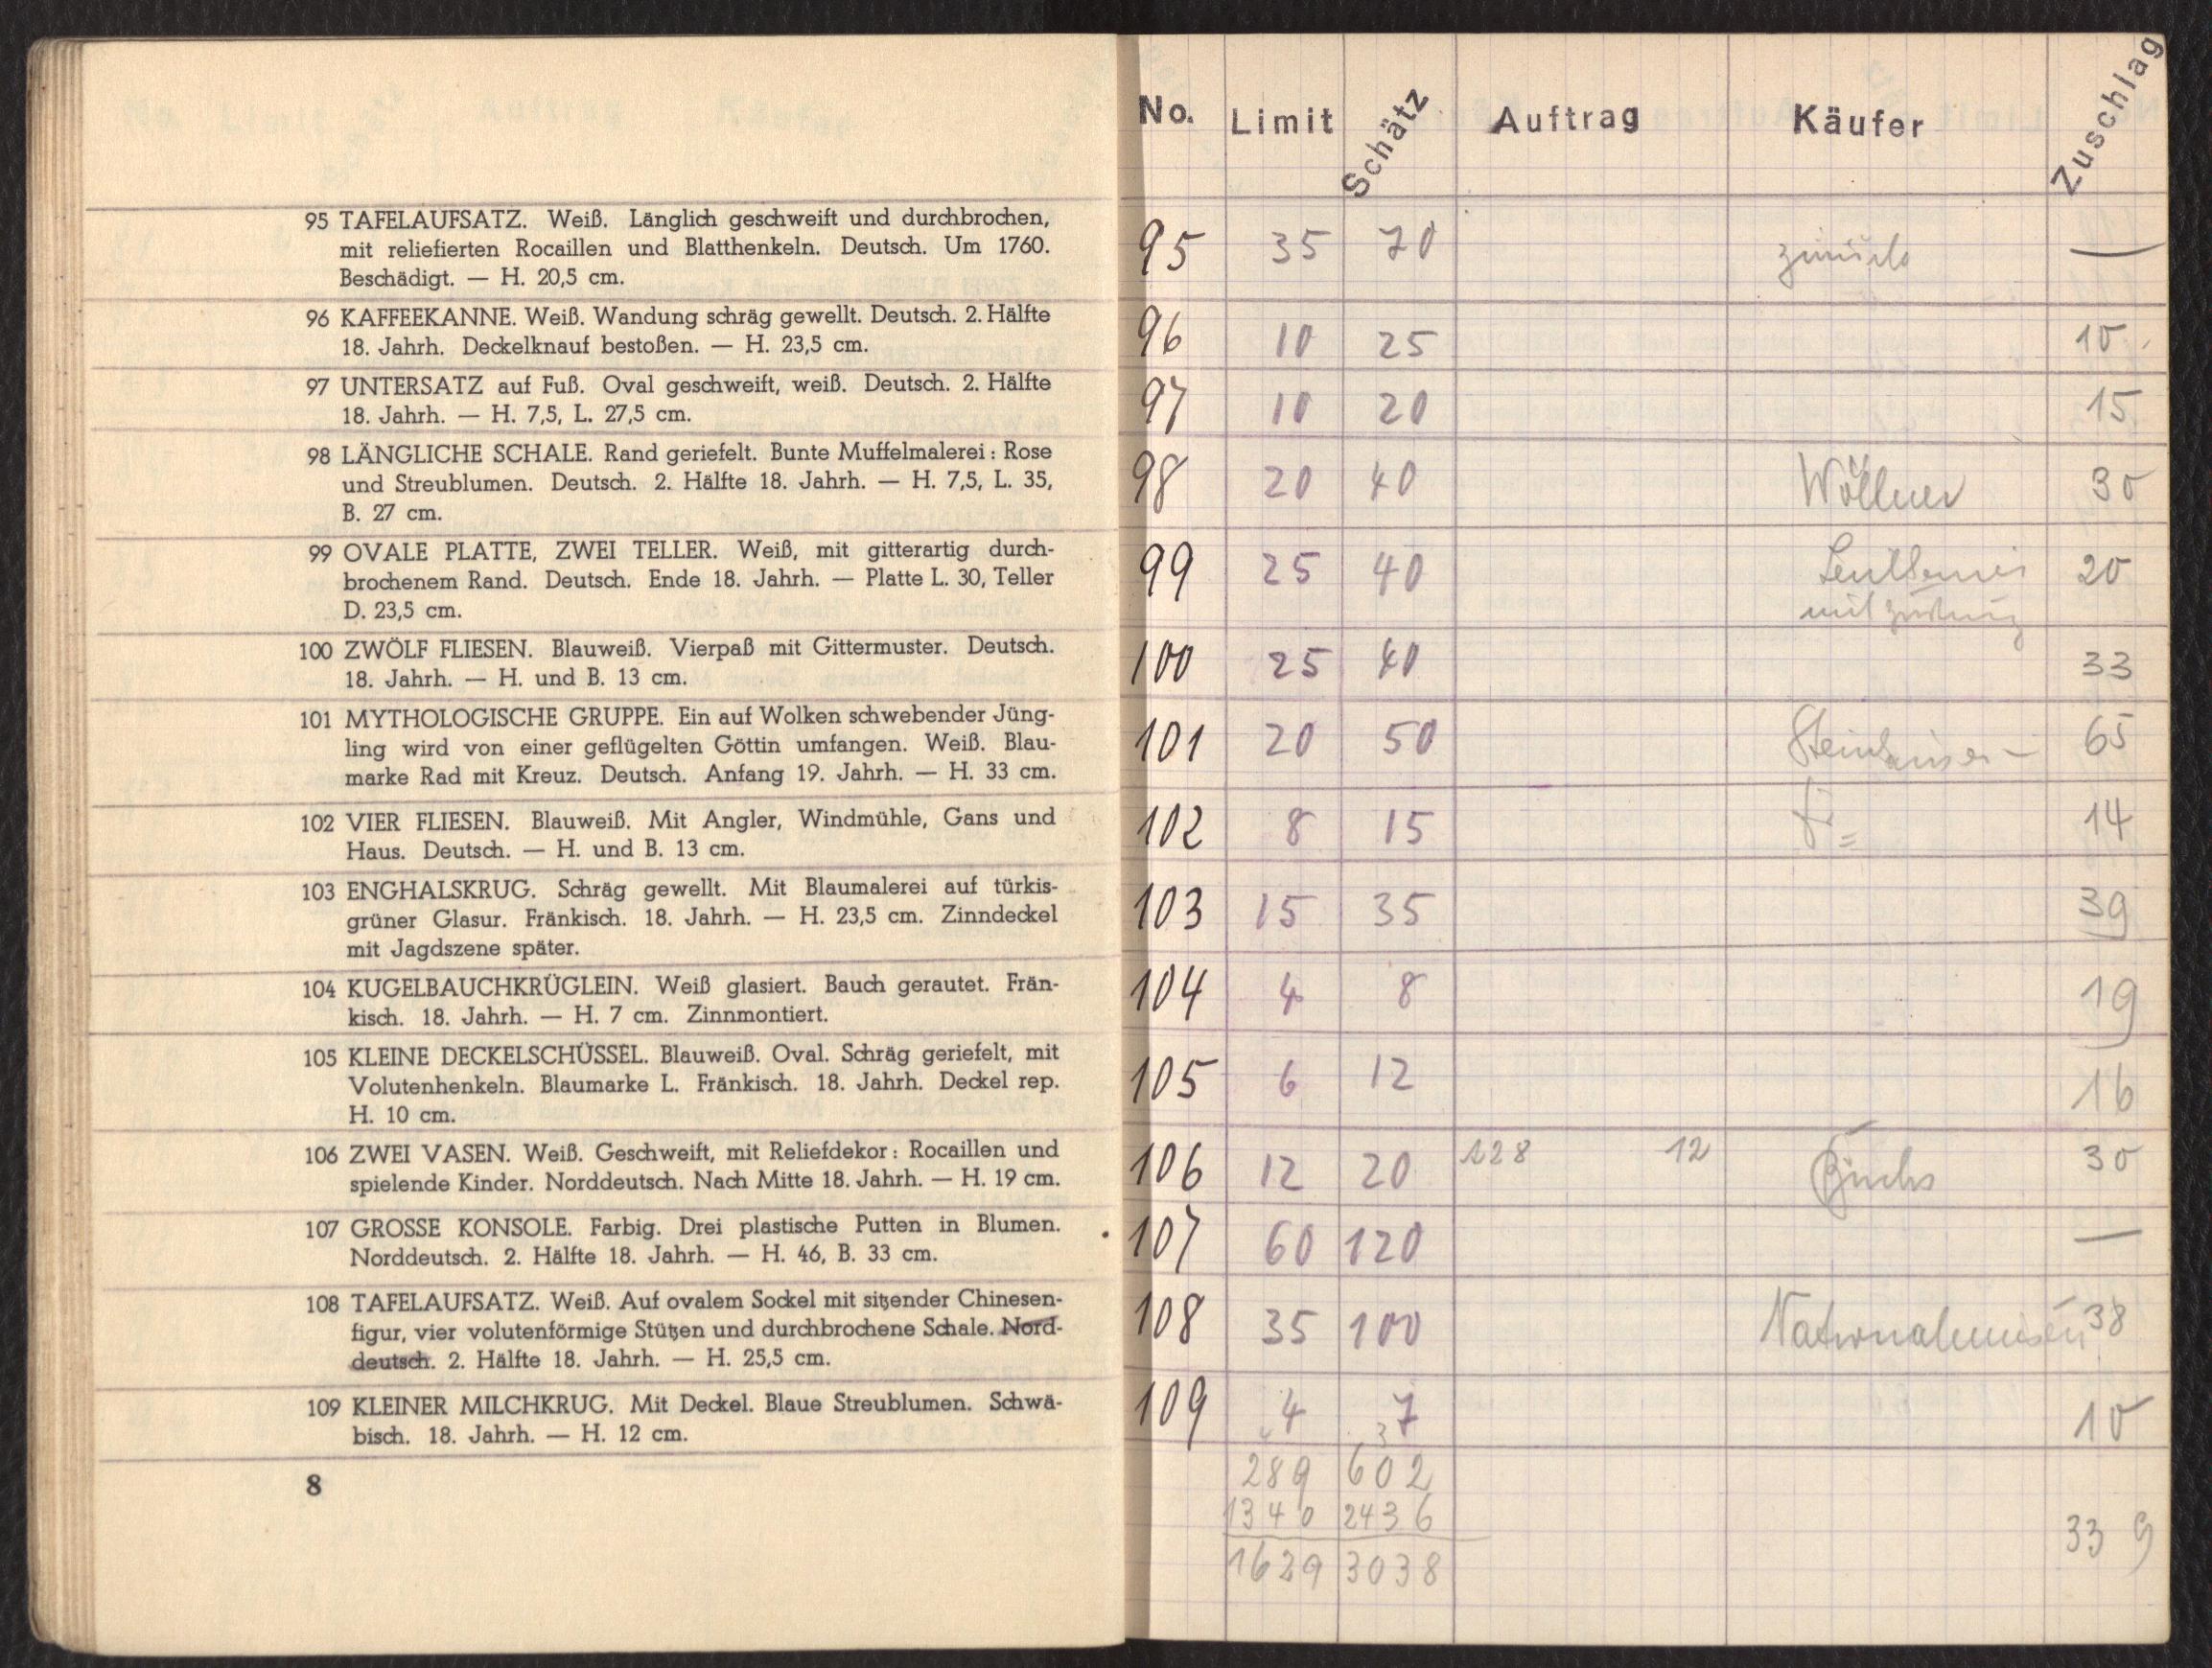 95 TAFELAUFSATZ. Weiß. Länglich geschweift und durchbrochen,
mit reliefierten Rocaillen und Blatthenkeln. Deutsch. Um 1760.
Beschädigt. — H. 20,5 cm.
96 KAFFEEKANNE. Weiß. Wandung schräg gewellt. Deutsch. 2. Hälfte
18. Jahrh. Deckelknauf bestoßen. — H. 23,5 cm.
97 UNTERSATZ auf Fuß. Oval geschweift, weiß. Deutsch. 2. Hälfte
18. Jahrh. — H. 7,5, L. 27,5 cm.
98 LÄNGLICHE SCHALE. Rand geriefelt. Bunte Muffelmalerei: Rose
und Streublumen. Deutsch. 2. Hälfte 18. Jahrh. — H. 7,5, L. 35,
B. 27 cm.
99 OVALE PLATTE, ZWEI TELLER. Weiß, mit gitterartig durch-
brochenem Rand. Deutsch. Ende 18. Jahrh. — Platte L. 30, Teller
D. 23,5 cm.
100 ZWÖLF FLIESEN. Blauweiß. Vierpaß mit Gittermuster. Deutsch.
18. Jahrh. — H. und B. 13 cm.
101 MYTHOLOGISCHE GRUPPE. Ein auf Wolken schwebender Jüng-
ling wird von einer geflügelten Göttin umfangen. Weiß. Blau-
marke Rad mit Kreuz. Deutsch. Anfang 19. Jahrh. — H. 33 cm.
102 VIER FLIESEN. Blauweiß. Mit Angler, Windmühle, Gans und
Haus. Deutsch. — H. und B. 13 cm.
103 ENGHALSKRUG. Schräg gewellt. Mit Blaumalerei auf türkis-
grüner Glasur. Fränkisch. 18. Jahrh. — H. 23,5 cm. Zinndeckel
mit Jagdszene später.
104 KUGELBAUCHKRÜGLEIN. Weiß glasiert. Bauch gerautet. Frän-
kisch. 18. Jahrh. — H. 7 cm. Zinnmontiert.
105 KLEINE DECKELSCHÜSSEL. Blauweiß. Oval. Schräg geriefelt, mit
Volutenhenkeln. Blaumarke L. Fränkisch. 18. Jahrh. Deckel rep.
H. 10 cm.
106 ZWEI VASEN. Weiß. Geschweift, mit Reliefdekor: Rocaillen und
spielende Kinder. Norddeutsch. Nach Mitte 18. Jahrh. — H. 19 cm.
107 GROSSE KONSOLE. Farbig. Drei plastische Putten in Blumen.
Norddeutsch. 2. Hälfte 18. Jahrh. — H. 46, B. 33 cm.
108 TAFELAUFSATZ. Weiß. Auf ovalem Sockel mit sitzender Chinesen-
figur, vier volutenförmige Stützen und durchbrochene Schale. Nord-
deutsch. 2. Hälfte 18. Jahrh. — H. 25,5 cm.
109 KLEINER MILCHKRUG. Mit Deckel. Blaue Streublumen. Schwä-
bisch. 18. Jahrh. — H. 12 cm.
8
No. Limit Schätz Auftrag Käufer Zuschlag
95 35 70 zurück —
96 10 25 10
97 10 20 15
98 20 40 Wöllner 30
99 25 40 20
mit
100 25 40 33
101 20 50 65
102 8 15 14
103 15 35 39
104 4 8 19
105 6 12 16
106 12 20 128 12 30
107 60 120 —
108 35 100 38
109 4 7 10
289 602
1340 2436
1629 3038
33 9